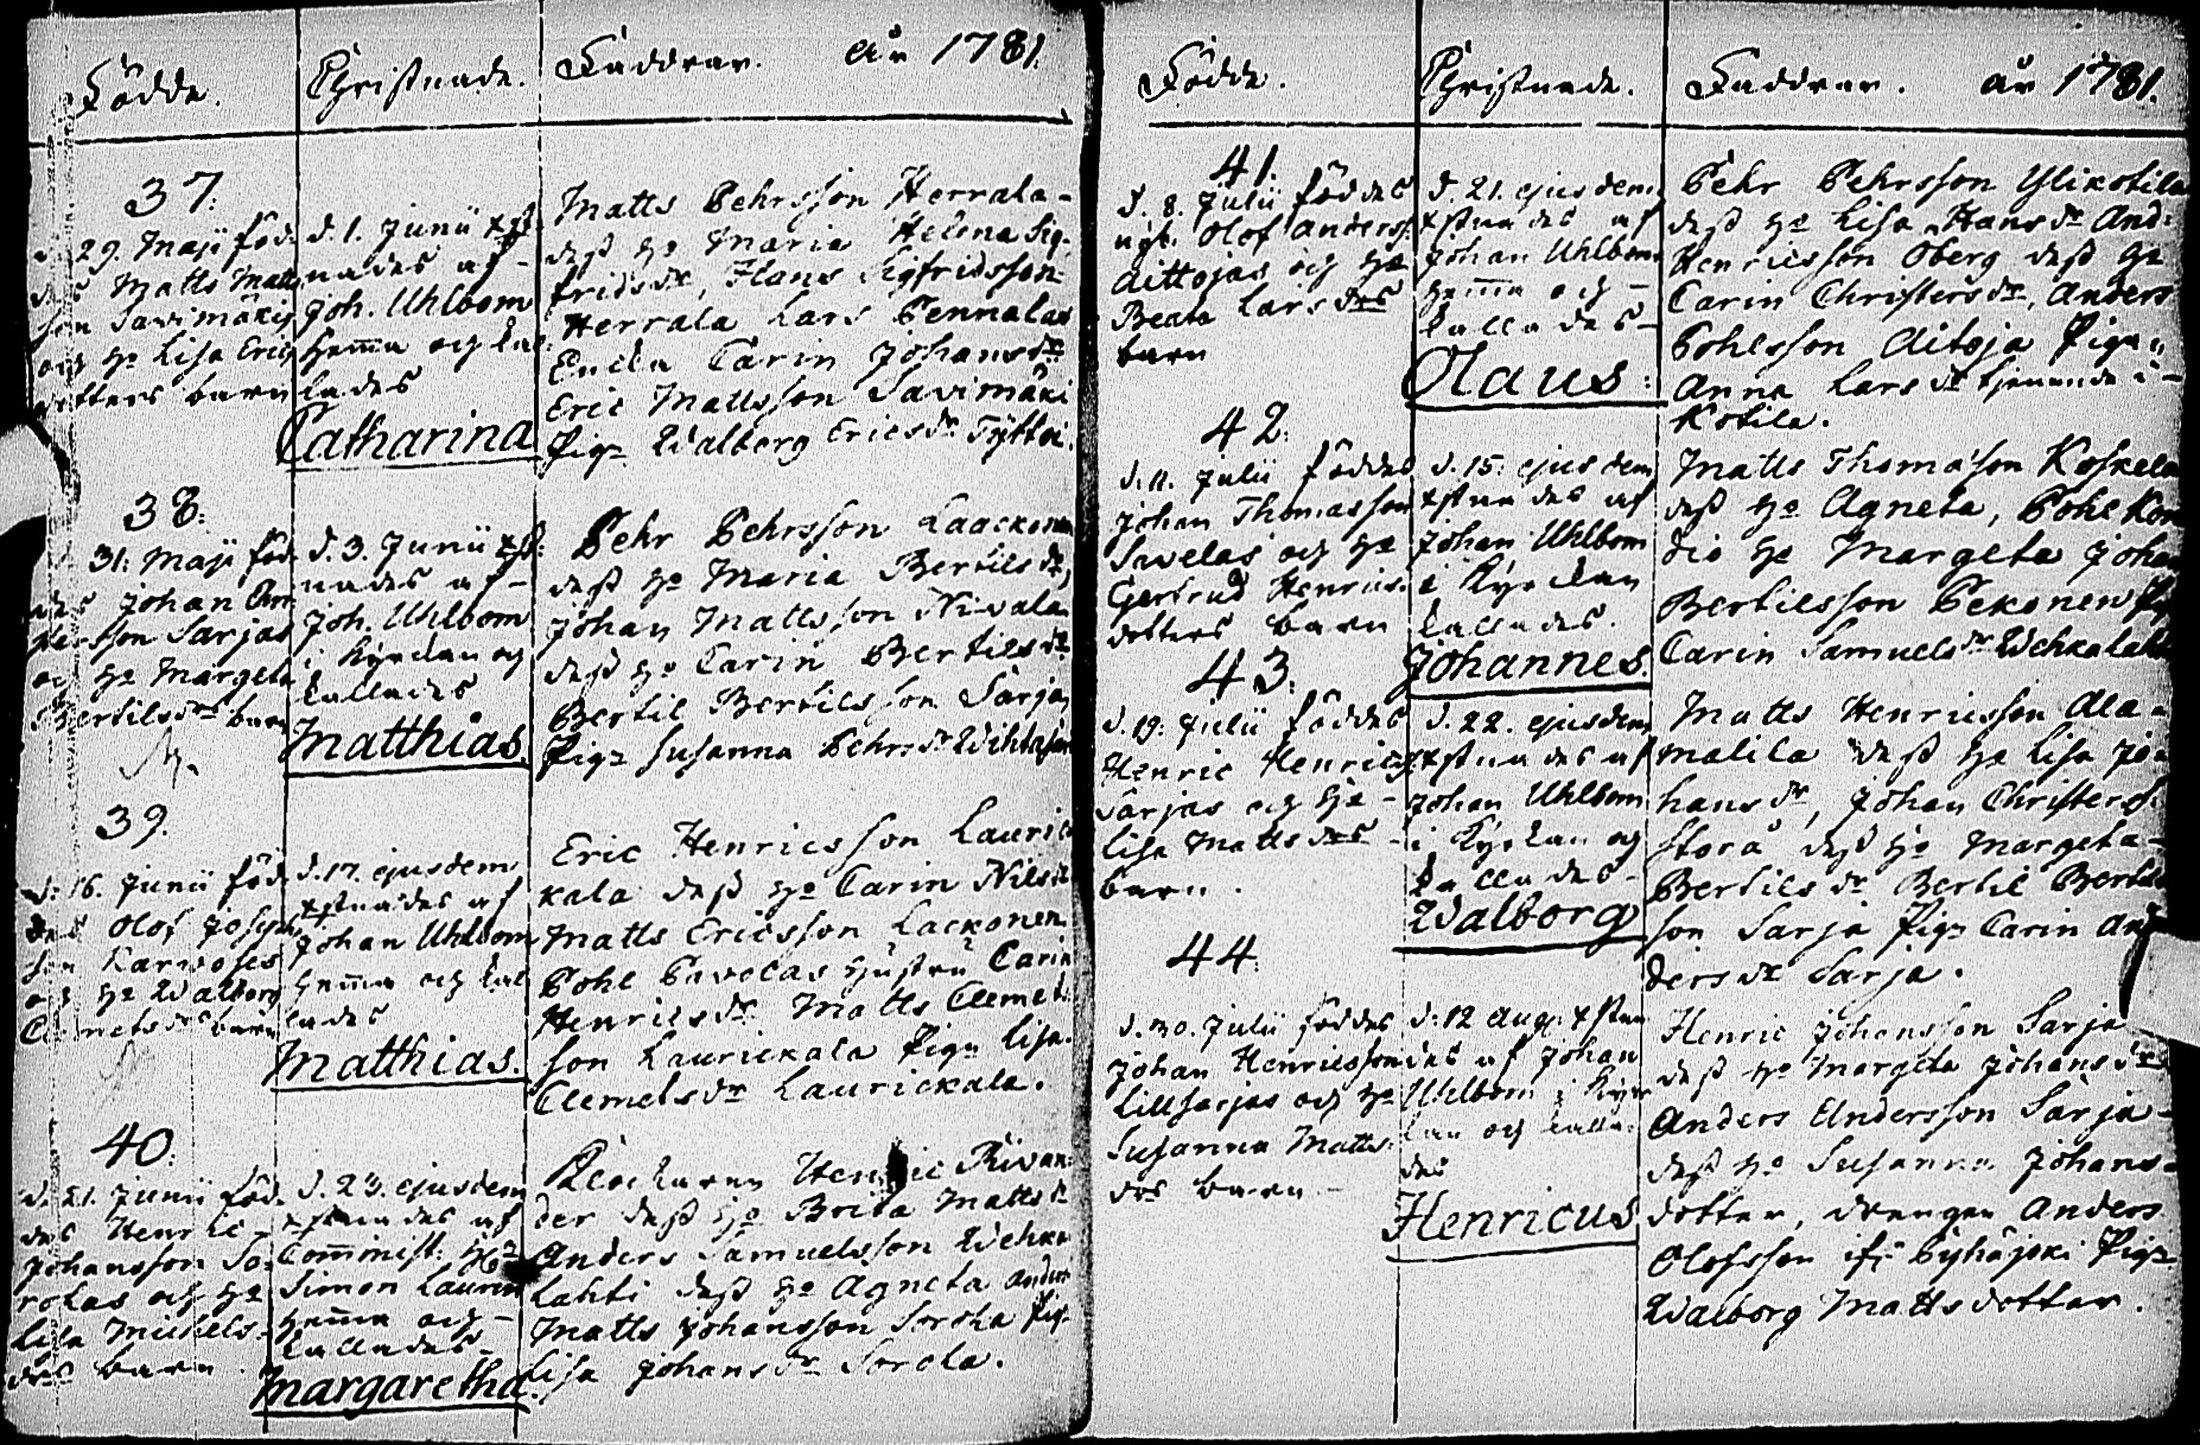 Födde.
Christnade.
Faddrar. år 1781.
37.
29. Maji föd-
Matts Matts
son Savimäkis
och h:o Lisa Erics
dotters barn
d. 1. Junii xst-
nades af -
Joh. Uhlbom
hemma och kal-
lades
Catharina
Matts Pehrsson Herrala -
dess h:o Maria Helena Sig-
fridsdr, Hans Sigfridsson
Herrala Lars Pennalas
Enka Carin Johansdr
Eric Mattsson Savimäki
Pig. Walborg Ericsdr
38.
31. Maji föd-
des Johan
son Sarjas
och h:o Margeta
Bertilsdrs barn
d. 3. Junii xst-
nades af -
Joh. Uhlbom
i Kyrckan och
kallades
Matthias.
Pehr Pehrsson Laackonen
dess h:o Maria Bertilsdr,
Johan Mattsson Nivala
dess h:o Carin Bertilsdr
Bertil Bertilsson Sarja,
Pig. Susanna Pehrsdr
39.
d. 16. Junii föd-
des Olof Josephs
son Karvoses
och h:o Walborg
Clemetsdrs barn
d. 17. ejusdem
xstnades af
Johan Uhlbom
hemma och kal
lades
Matthias.
Eric Henricsson Lauric
kala dess h:o Carin Nilsdr
Matts Ericsson Lackonen
Pohl Pavolas hustru Carin
Henricsdr Matts Clemet
son Laurickala Pig. Lisa
Clemetsdr Laurickala.
40.
d. 21. Junii föd-
des Henric -
Johansson So-
rolas och h:o
Lisa Michels-
drs barn.
d. 23. ejusdem
xstnades af
Comminist: Hr
Simon Laurin
hemma och -
kallades -
Margaretha.
Klockaren Henric
der dess h:o Brita Mattsdr
Anders Samuelsson Wehka
lahti dess h:o Agneta Anders
Matts Johansson Sorola Pig.
Lisa Johansdr Sorola.
Födde.
Christnade.
Faddrar. år 1781.
41.
d. 8. Julii föddes
ngb. Olof Anderss:
Aittojas och h:o
Beata Larsdrs
barn
d. 21. ejusdem
xstnades af
Johan Uhlbom
hemma och -
kallades -
Olaus.
Pehr Pehrsson Ylikotila
dess h:o Lisa Hansdr And:
Henricsson Öberg dess h:o
Carin Christersdr, Anders
Pohlsson Aitoja Pigan
Anna Larsdr tjenande i -
Kotila.
42.
d. 11. Julii föddes
Johan Thomasson
Savelas och h:o
Gertrud Henrics-
dotters barn
d. 15. ejusdem
xstnades af
Johan Uhlbom
i Kyrckan
kallades.
Johannes.
Matts Thomason Koskela
dess h:o Agneta, Pohl
h:o Margeta Johan
Bertilsson Pekonen Pig
Carin Samuelsdr Wehkalahti
43.
d. 19. Julii föddes
Henric Henrics
Sarjas och h:o -
Lisa Mattsdrs -
barn.
d. 22. ejusdem
xstnades af
Johan Uhlbom
i Kyrckan och
kallades -
Walborg
Matts Henricsson Ala-
malila dess h:o Lisa Jo-
hansdr, Johan Christers:
Stora dess h:o Margeta -
Bertilsdr Bertil Bertils
son Sarja Pig. Carin An
dersdr Sarja.
44.
d. 30. Julii föddes
Johan Henricsson
Lillsarjas och h:o
Susanna Matts-
drs barn -
d. 12 Aug. xstna
des af Johan
Uhlbom i Kyrc
kan och kalla-
des
Henricus
Henric Johansson Sarja
dess h:o Margeta Johansdr
Anders Andersson Sarja -
dess h:o Susanna Johans-
dotter, drengen Anders
Olofsson Pyhäjoki Pig.
Walborg Mattsdotter.